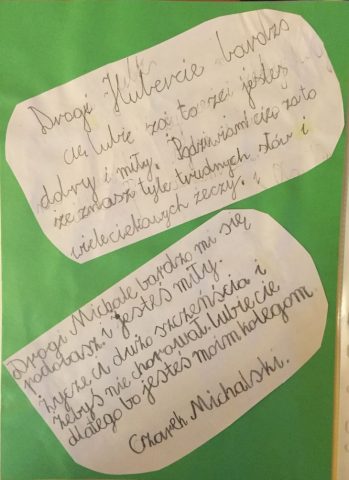 Drogi Hubercie bardzo
cię lubię za to że jesteś
dobry i miły. Podziwiam cię za to
że znasz tyle trudnych słów i
wieleciekawych żeczy.
Drogi Michale bardzo mi się
podobasz i jesteś miły.
Życze ci dużo szczenścia i
żebyś nie chorował. lubiecie
dlatego bo jesteś moim kolegom.
Czarek Michalski.